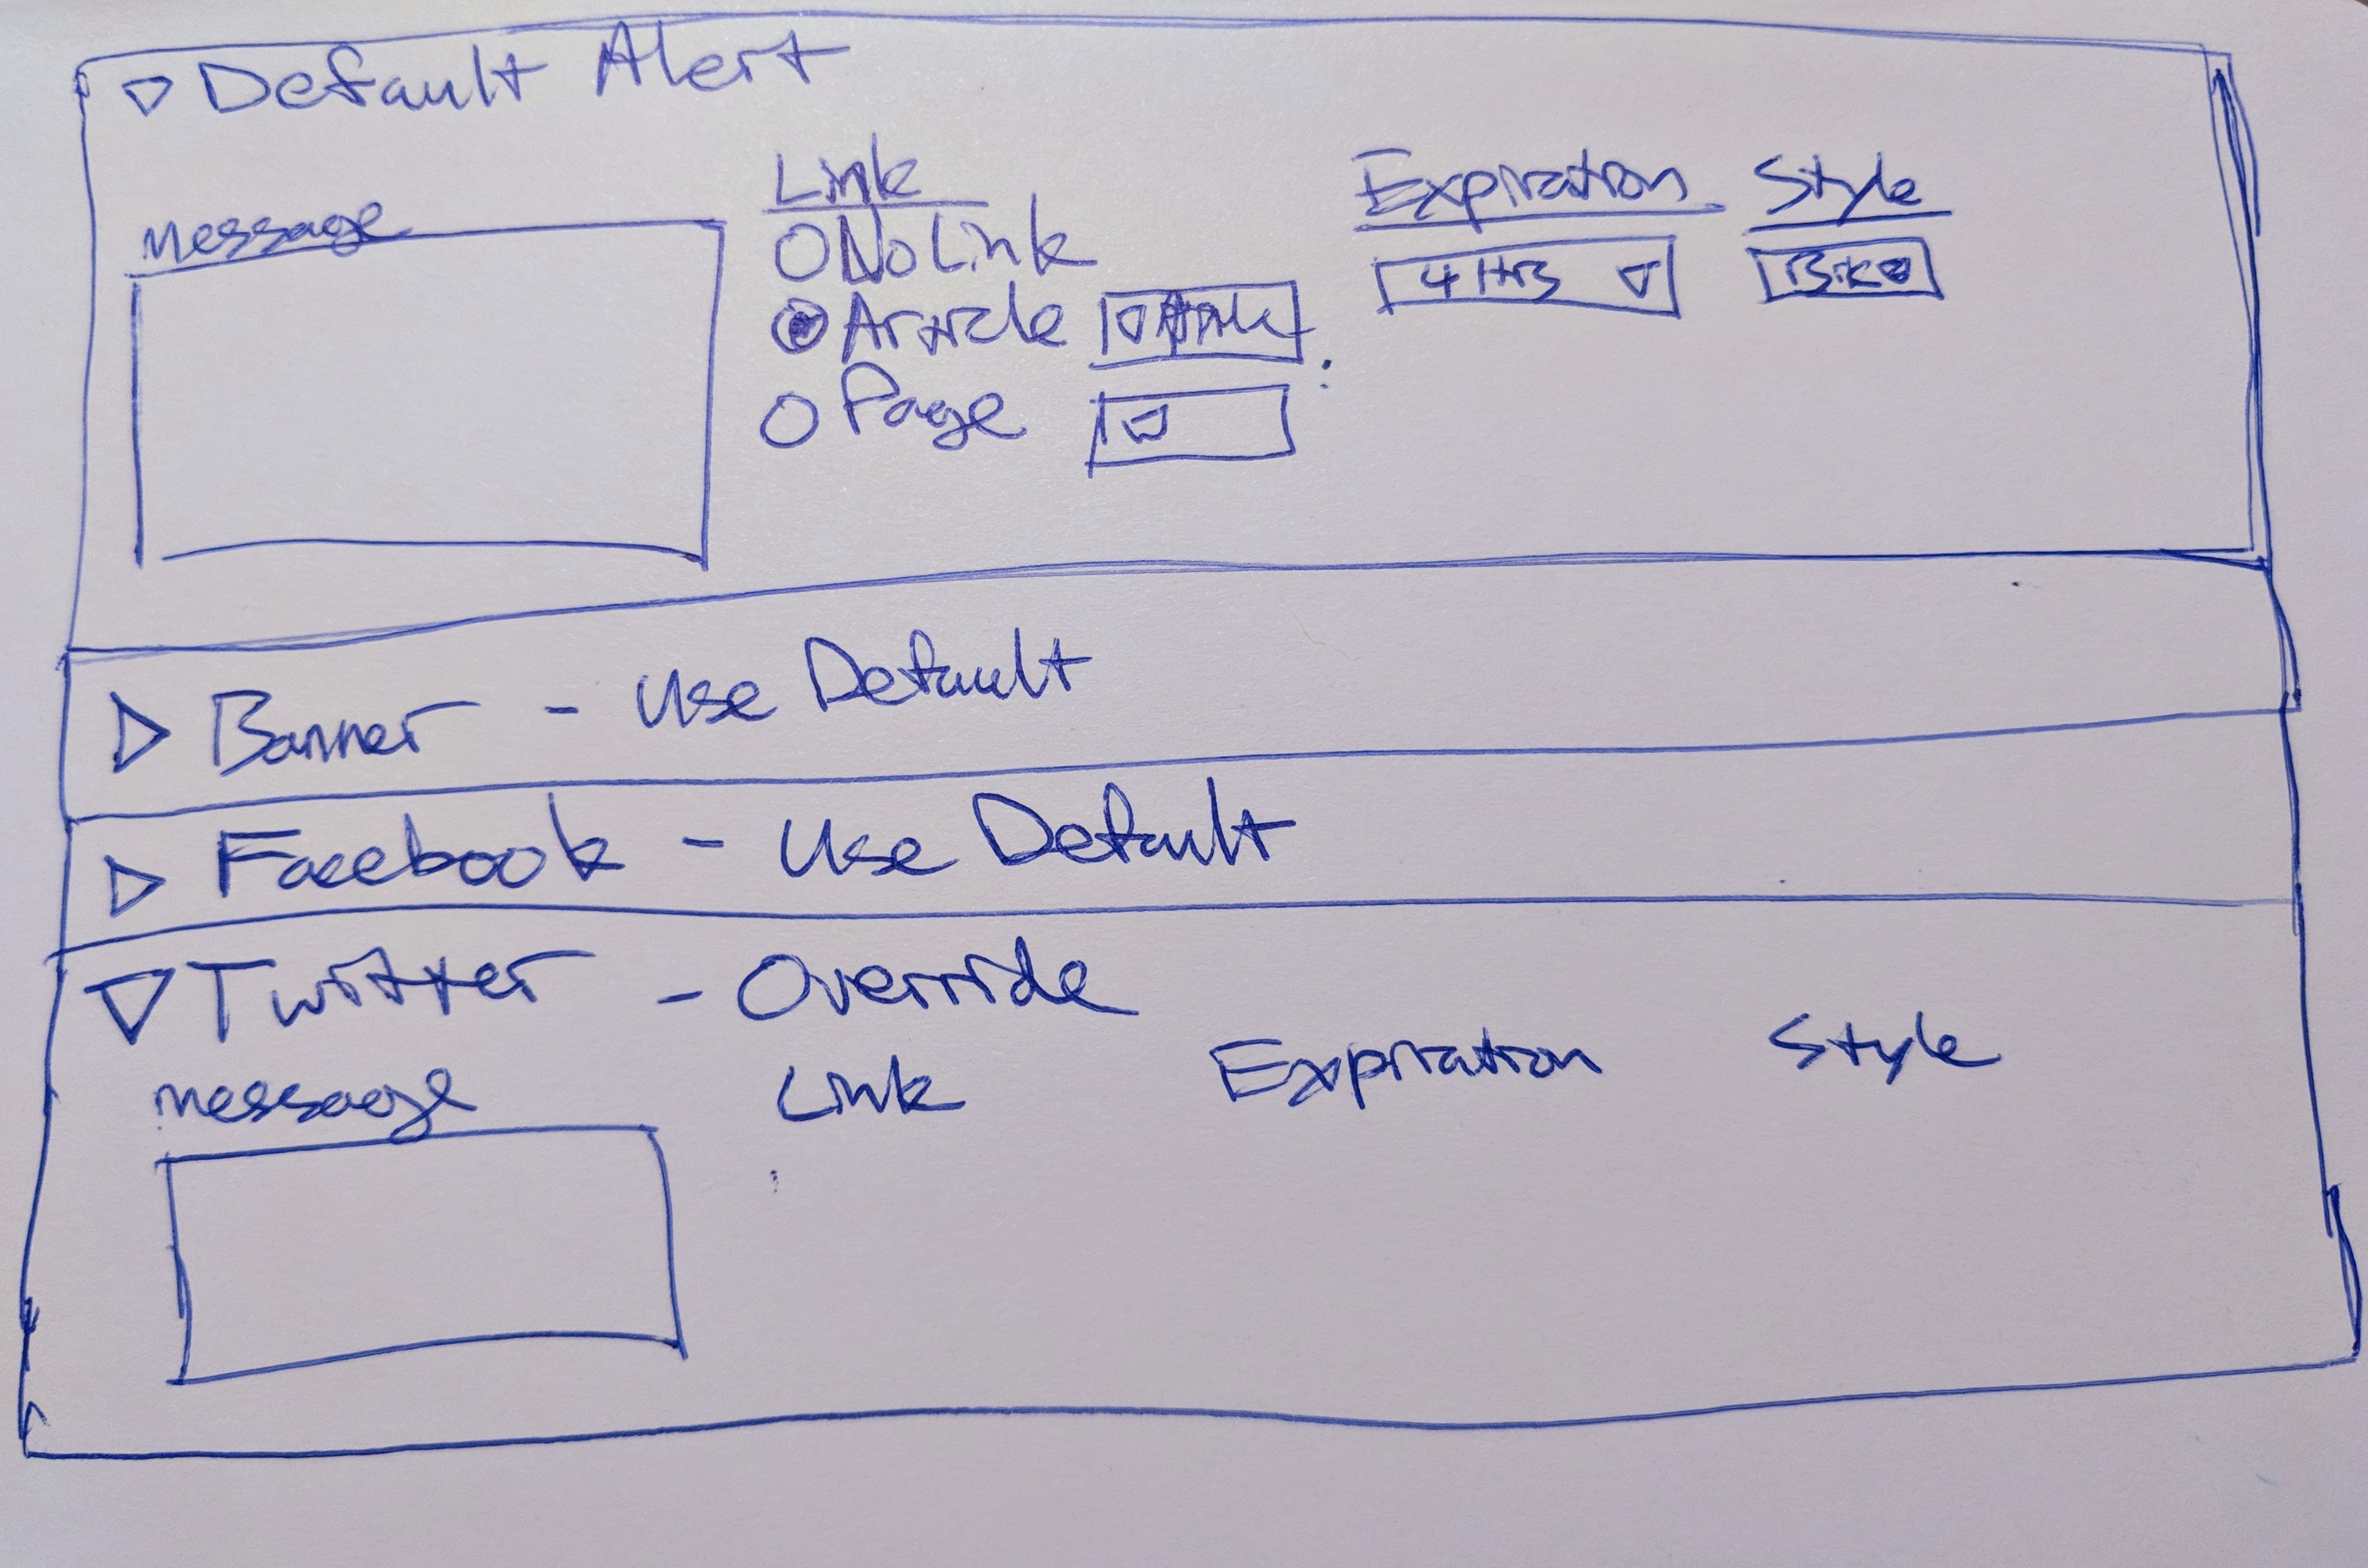 Default Alert
message
Link
No Link
Article
Page
Expiration
4 Hrs
Style
Banner - Use Default
Facebook - Use Default
Twitter - Override
message
Link
Expiration
Style